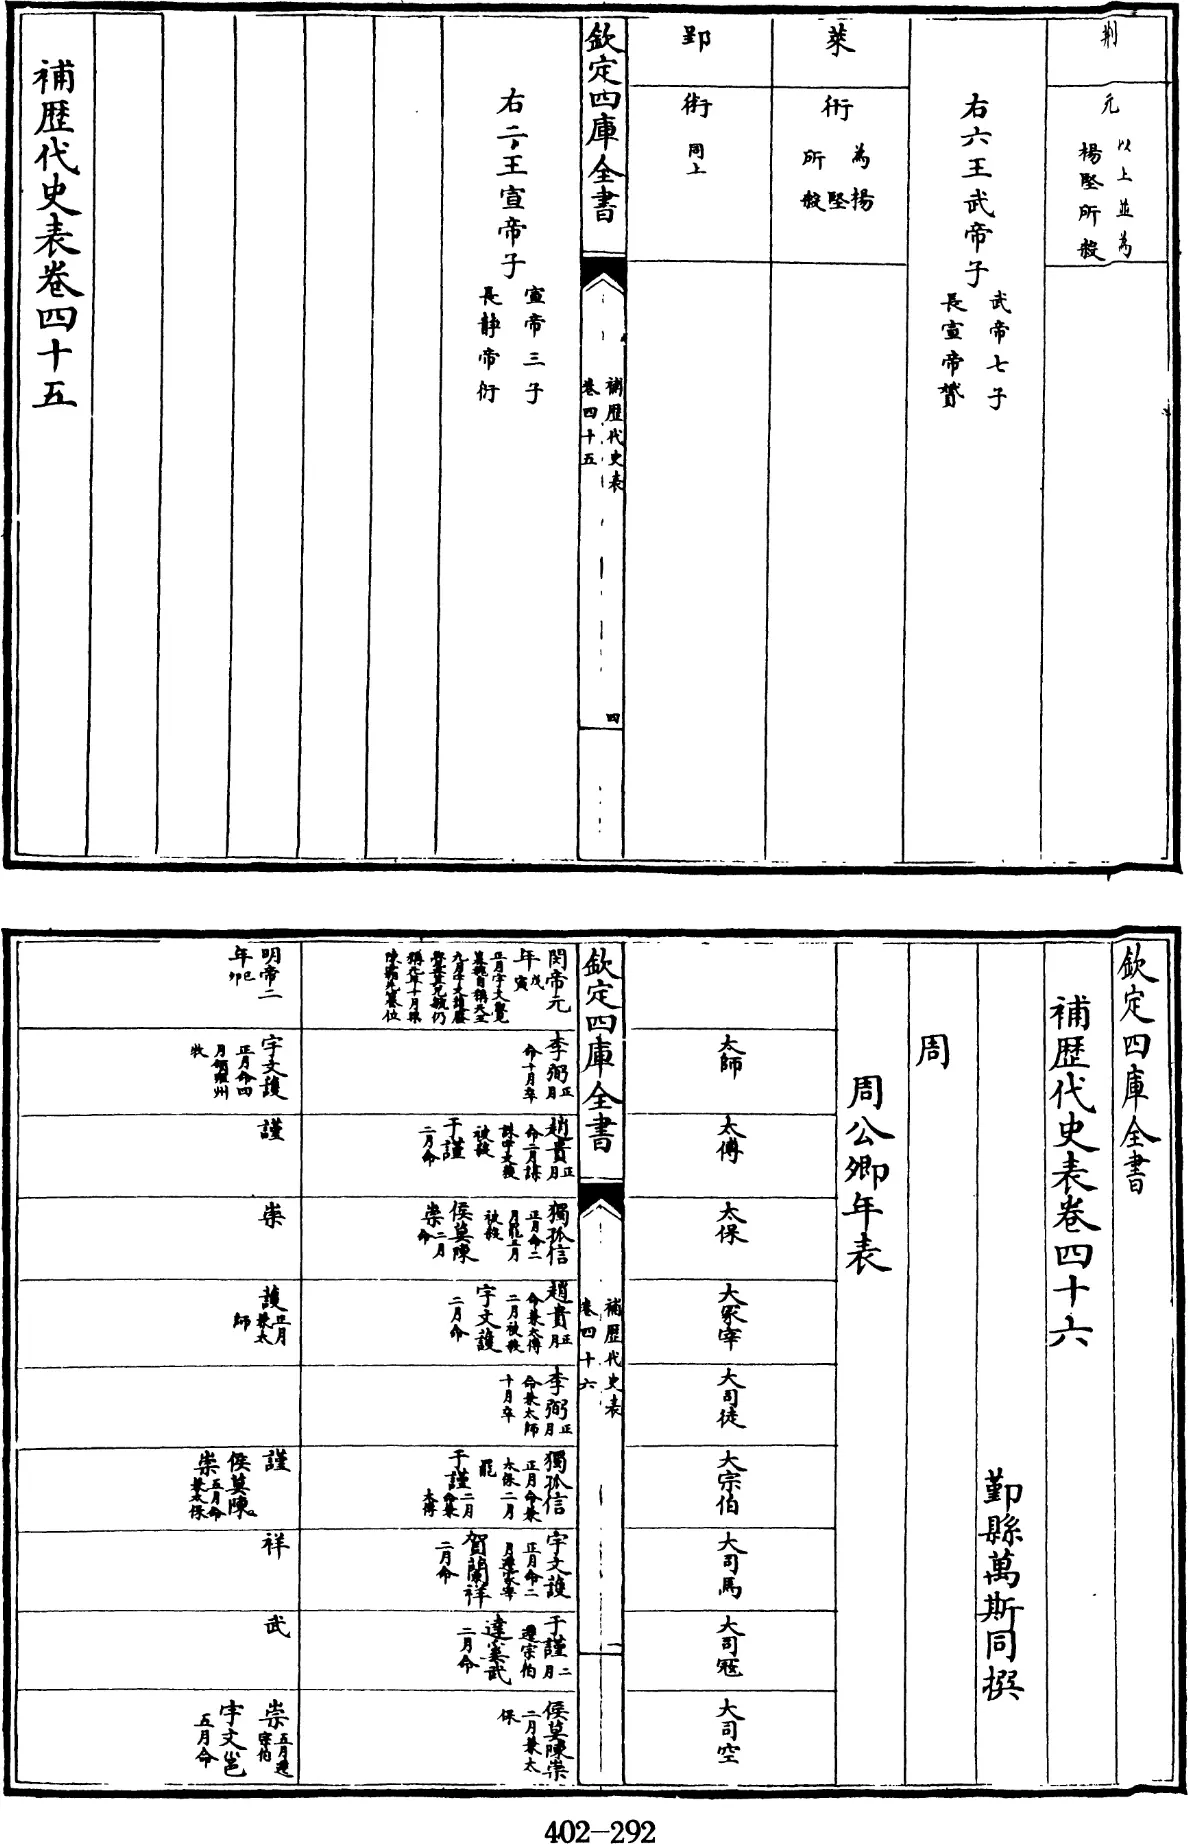 荆
元 以上並為楊堅所殺
右六王武帝子 武帝七子長宣帝贇
萊
衎 為楊堅所殺
郢
術 同上
欽定四庫全書
補歷代史表
卷四十五
四
右二王宣帝子 宣帝三子長靜帝衍
補歷代史表卷四十五
欽定四庫全書
補歷代史表卷四十六
鄞縣萬斯同撰
周
周公卿年表
太師
太傅
太保
大冢宰
大司徒
大宗伯
大司馬
大司寇
大司空
欽定四庫全書
補歷代史表
卷四十六
一
閔帝元年戊寅 正月宇文覺篡魏自稱天王九月宇文護廢覺立其兄毓仍稱元年十月陳霸先篡位
李弼 正月命十月卒
趙貴 正月命二月謀誅宇文護被殺
于謹 二月命
獨孤信 正月命二月罷三月被殺
侯莫陳崇 二月命
趙貴 正月命兼太傅二月被殺
宇文護 二月命
李弼 正月命兼太師十月卒
獨孤信 正月命兼太保二月罷
于謹 二月命兼太傅
宇文護 正月命二月遷冢宰
賀蘭祥 二月命
于謹 二月遷宗伯
達奚武 二月命
侯莫陳崇 二月兼太保
明帝二年己卯
宇文護 正月命四月領雍州牧
謹
崇
護 正月兼太師
謹
侯莫陳崇 五月命兼太保
祥
武
崇 五月遷宗伯
宇文邕 五月命
402-292